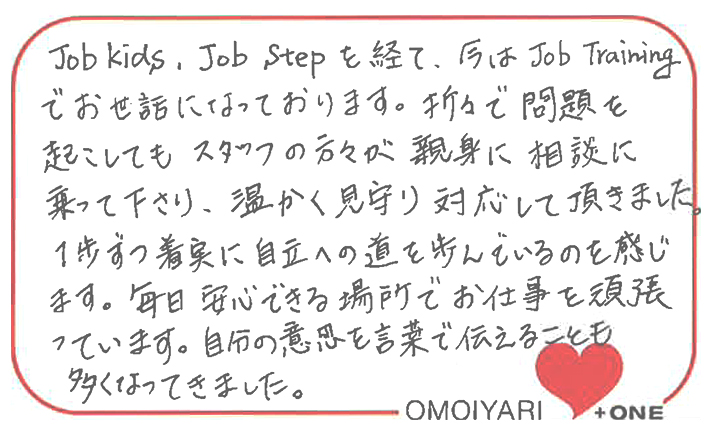 Job kids、Job Stepを経て、今はJob Training
でお世話になっております。折々で問題を
起こしてもスタッフの方々が親身に相談に
乗って下さり、温かく見守り対応して頂きました。
1歩ずつ着実に自立への道を歩んでいるのを感じ
ます。毎日安心できる場所でお仕事を頑張
っています。自分の意思を言葉で伝えることも
多くなってきました。
OMOIYARI +ONE